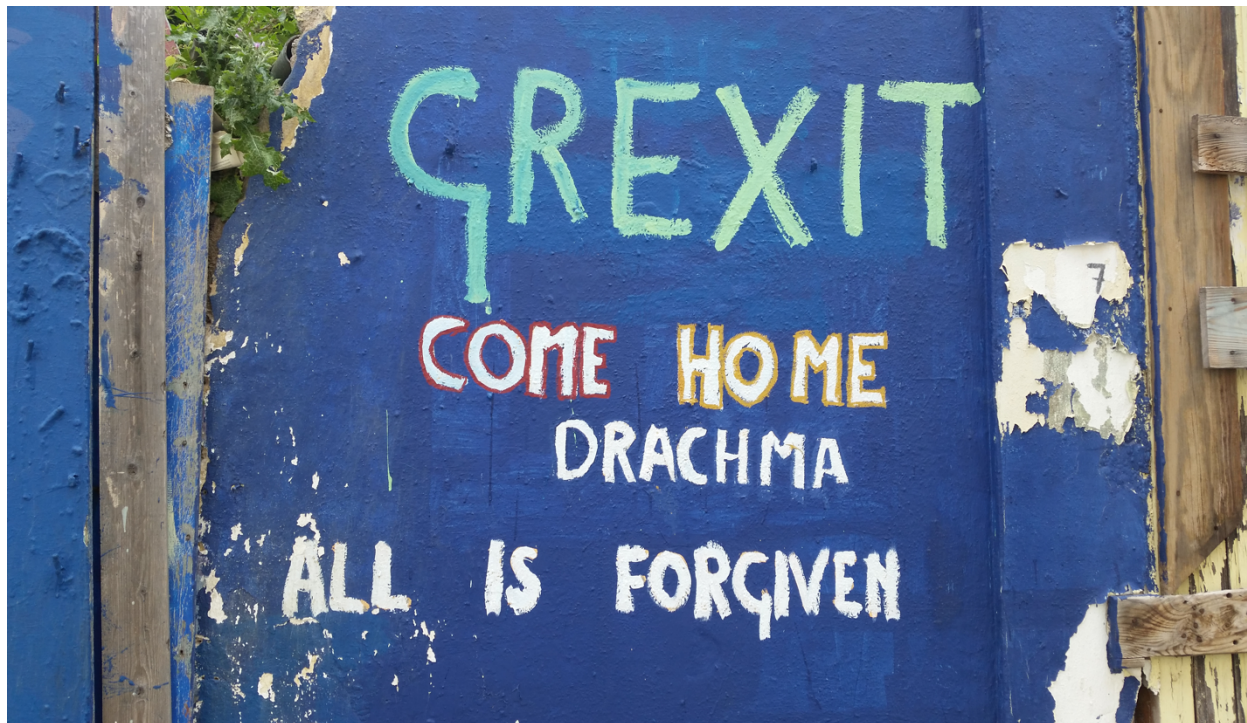 GREXIT
7
COME HOME
DRACHMA
ALL IS FORGIVEN